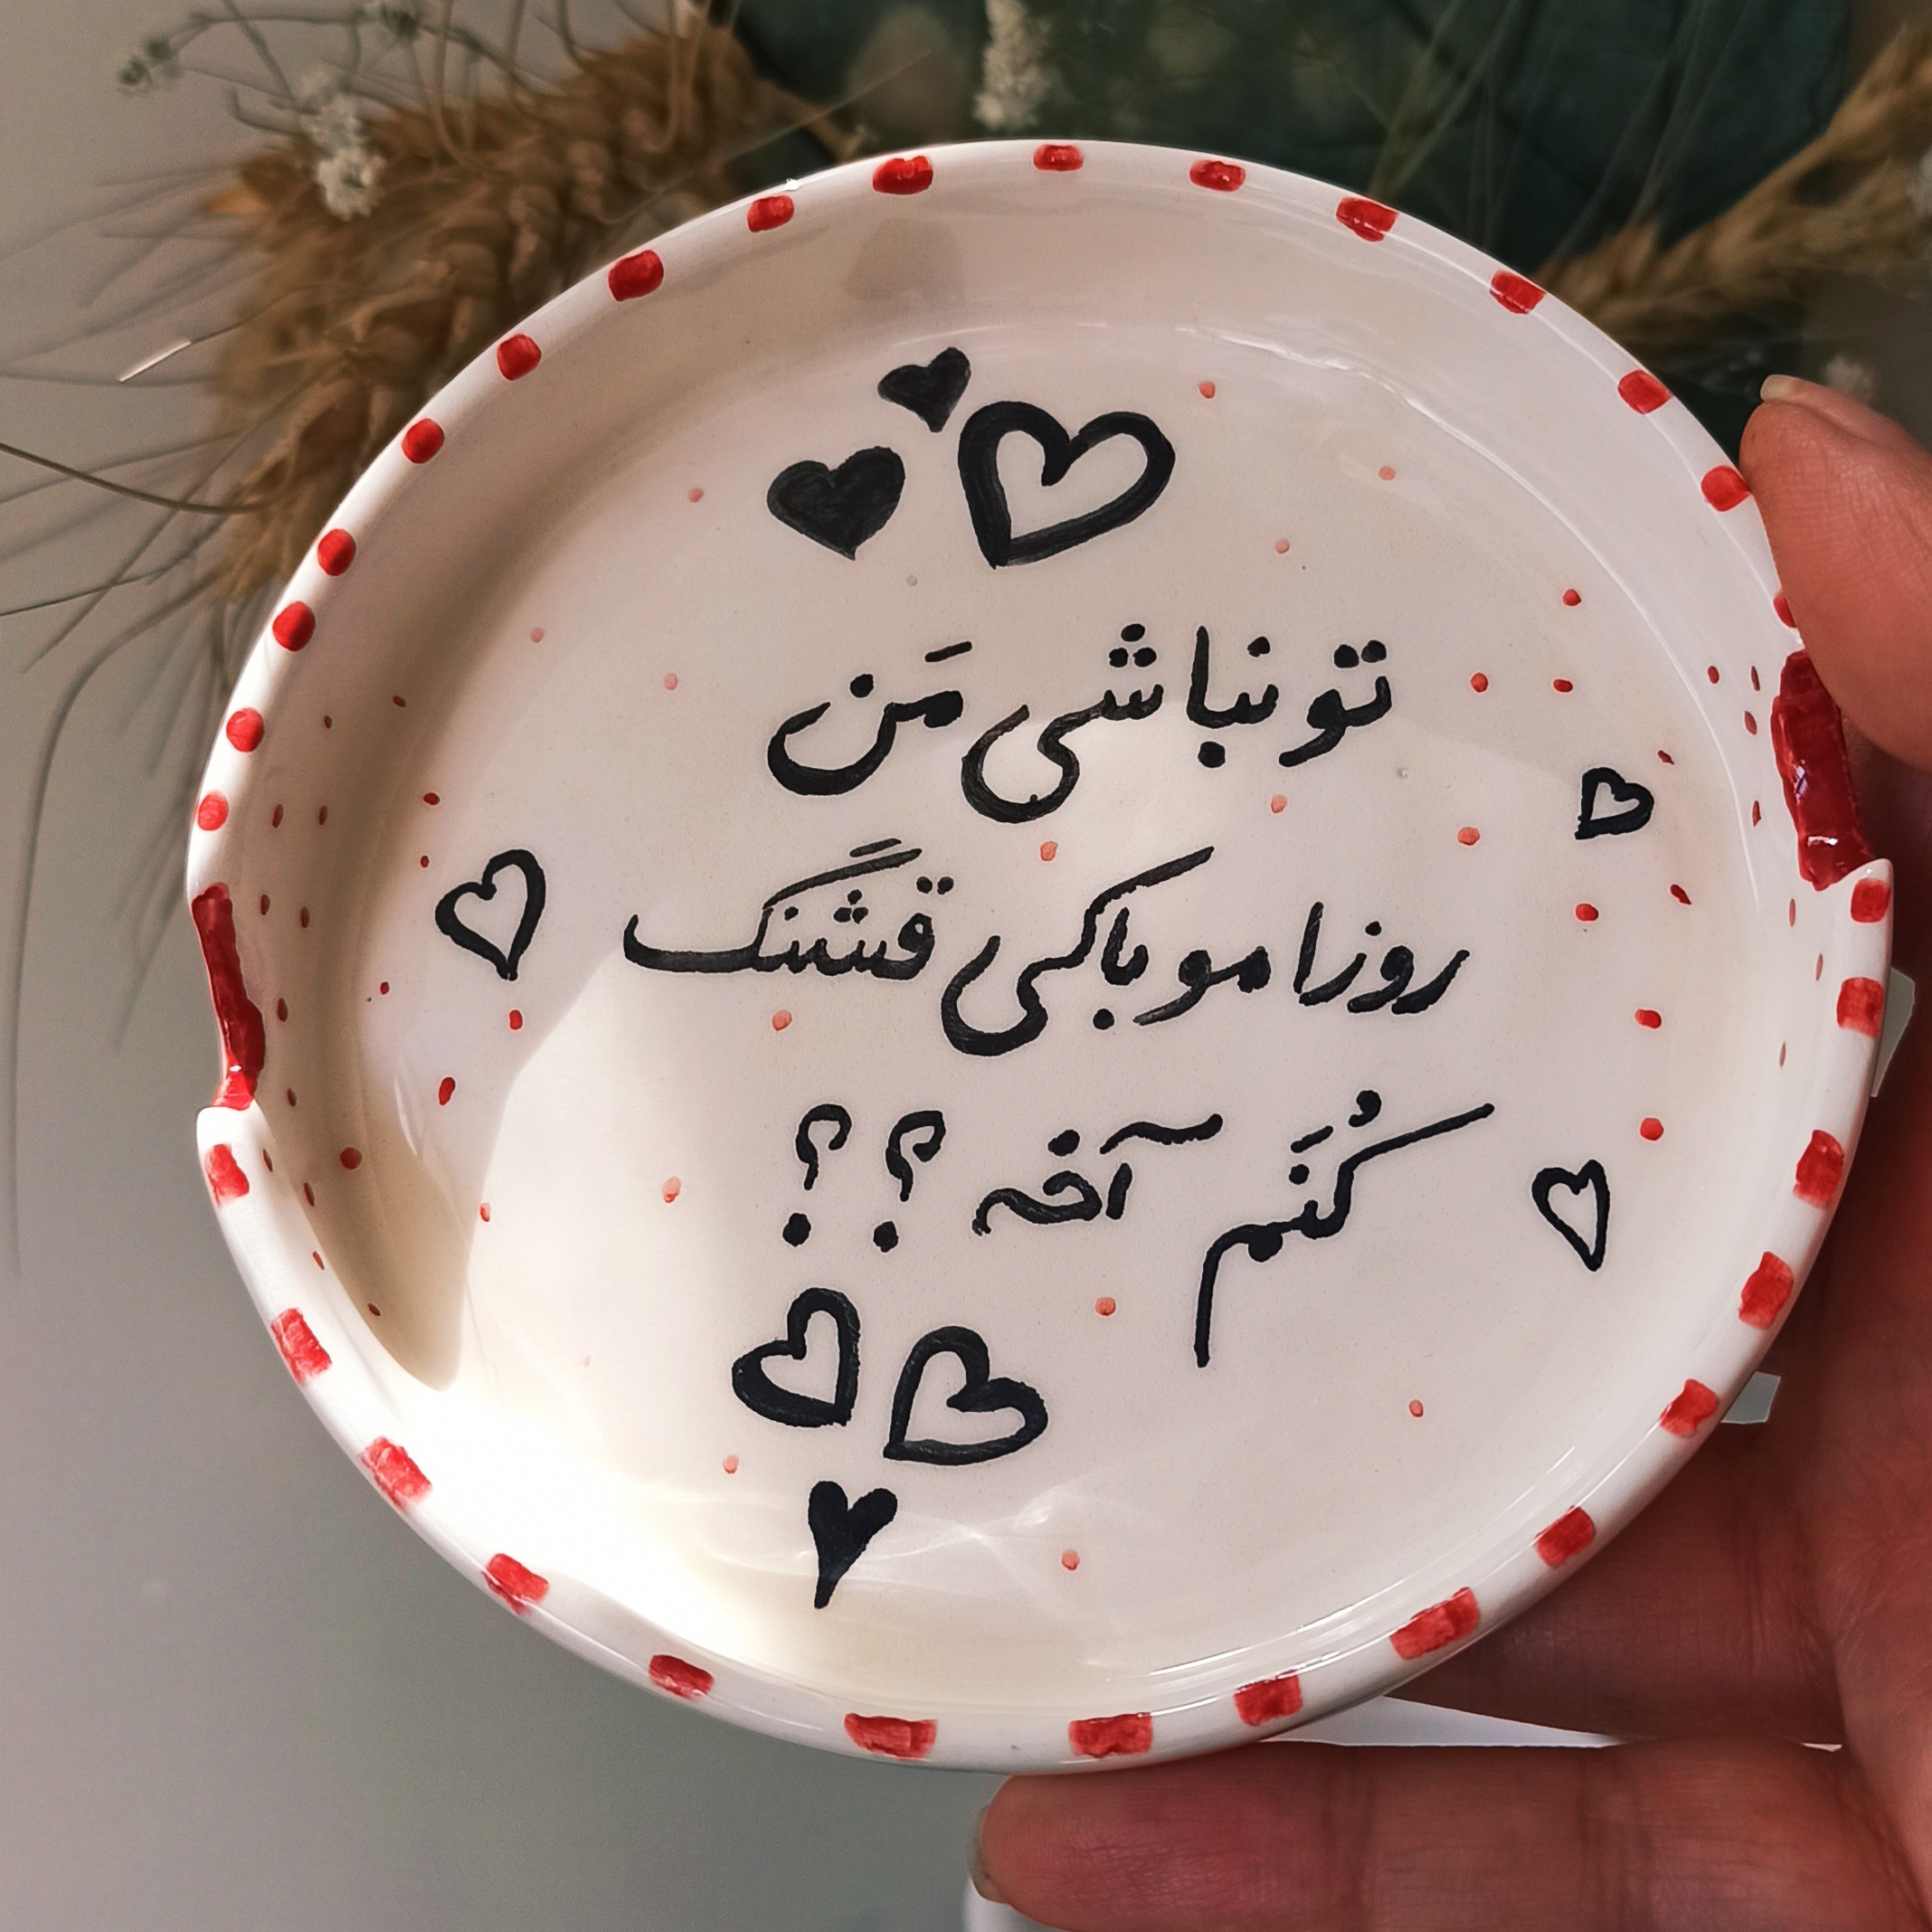 تو نباشی مَن
روزامو باکی قشنگ
کُنَم آخه ؟؟